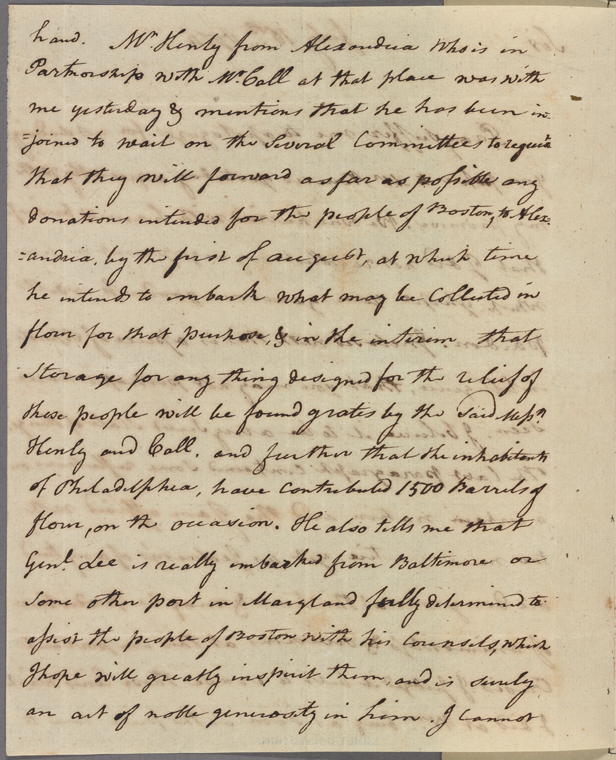 hand. Mr. Henly from Alexandria who is in
Partnorship with Mr. Call at that place was with
me yesterday & mentions that he has been in-
=joined to wait on the Several Committees to require
that they will forward as far as possible any
donations intended for the people of Boston, to Alex-
=andria, by the first of august, at which time
he intends to imbark what may be Collected in
flour for that purpose, & in the interim that
Storage for any thing designed for the relief of
these people will be found gratis by the Said Messrs
Henly and Call. and further that the inhabitants
of Philadelphia, have contributed 1500 Barrels of
flour, on the occasion. He also tells me that
Genl. Lee is really imbarked from Baltimore or
Some other port in Maryland fully determined to
assist the people of Boston with his Counsels, which
I hope will greatly inspirit them, and is surely
an act of noble generosity in him. I Cannot